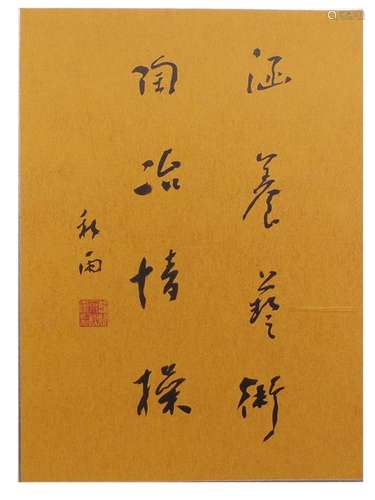 涵養藝術
陶冶情操
秋雨